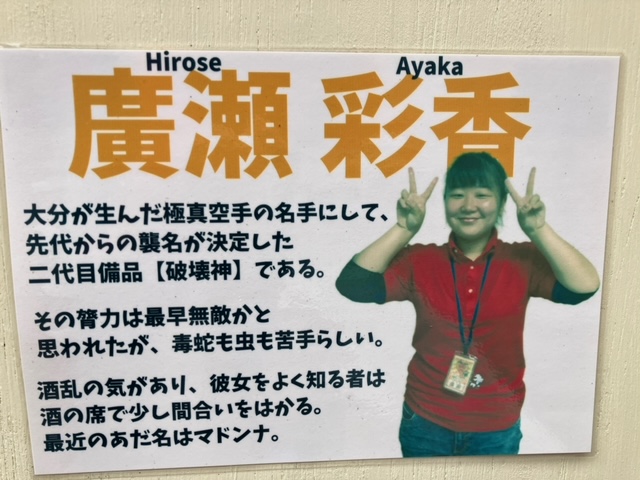 Hirose Ayaka
廣瀬 彩香
大分が生んだ極真空手の名手にして、
先代からの襲名が決定した
二代目備品【破壊神】である。
その膂力は最早無敵かと
思われたが、毒蛇も虫も苦手らしい。
酒乱の気があり、彼女をよく知る者は
酒の席で少し間合いをはかる。
最近のあだ名はマドンナ。